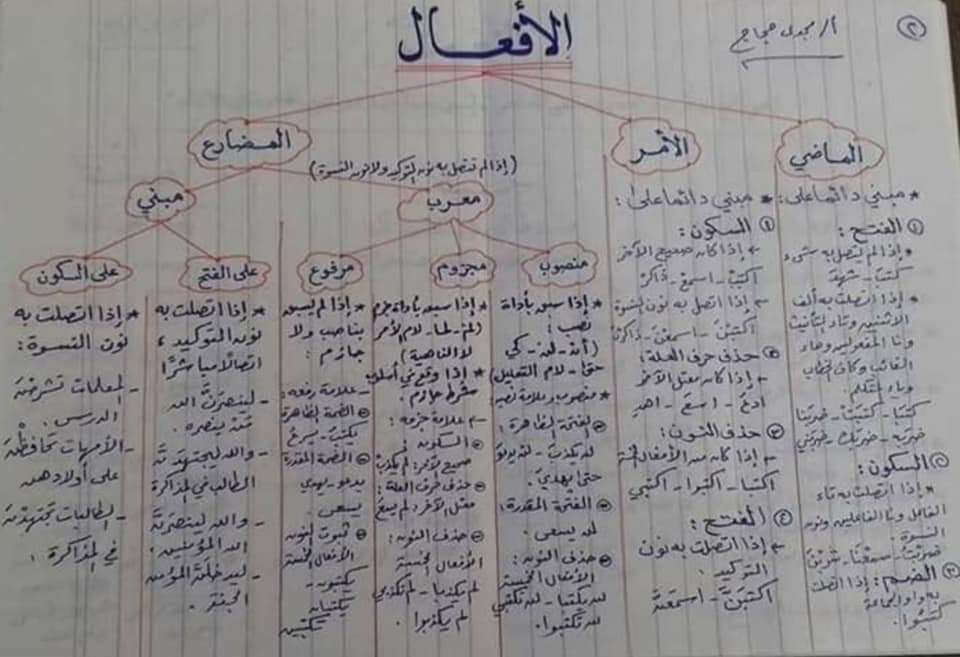 ٢
أ/ مجدى حجاج
الأفعال
الماضي
* مبني دائما على:
١ الفتح:
* إذا لم يتصل به شىء
كتبَ - شهدَ
* إذا اتصلت به ألف
الاثنين وتاء التأنيث
ونا المفعولين وهاء
الغائب وكاف الخطاب
وياء المتكلم.
كتبَا - كتبَتْ - ضربَنا
ضربَه - ضربَك - ضربَني
٢ السكون:
* إذا اتصلت به تاء
الفاعل ونا الفاعلين ونون
النسوة.
ضربْتُ - سمعْنَا - شربْنَ
٣ الضم: إذا اتصلت
به واو الجماعة
كتبُوا.
الأمر
* مبني دائما على:
١ السكون:
← إذا كان صحيح الآخر
اكتبْ - اسمعْ - ذاكرْ
← إذا اتصل به نون النسوة
اكتبْنَ - اسمعْنَ - ذاكرْنَ
٢ حذف حرف العلة:
← إذا كان معتل الآخر
ادعُ - اسعَ - اهدِ
٣ حذف النون:
← إذا كان من الأفعال الخمسة
اكتبا - اكتبوا - اكتبي
٤ الفتح:
← إذا اتصلت به نون
التوكيد.
اكتبَنَّ - اسمعَنَّ
المضارع
(إذا لم تتصل به نون التوكيد ولا نون النسوة)
معرب
منصوب
* إذا سبق بأداة
نصب:
(أن - لن - كي
حتى - لام التعليل)
* منصوب وعلامة نصبه
- الفتحة الظاهرة:
لن يكذبَ - لن يدعوَ
حتى يهديَ.
- الفتحة المقدرة:
لن يسعى.
- حذف النون:
الأفعال الخمسة
لن يكتبا - لن تكتبي
لن تكتبوا.
مجزوم
* إذا سبق بأداة جزم
(لم - لما - لام الأمر
لا الناهية)
* إذا وقع في أسلوب
شرط جازم.
← علامة جزمه:
- السكون:
صحيح الآخر: لم يكذبْ
- حذف حرف العلة:
معتل الآخر لم يسعَ
- حذف النون:
الأفعال الخمسة
لم يكذبا - لم تكذبي
لم يكذبوا.
مرفوع
* إذا لم يسبق
بناصب ولا
جازم:
- علامة رفعه:
- الضمة الظاهرة
يكتبُ - يسرعُ
- الضمة المقدرة
يدعو - يهدي
يسعى.
- ثبوت النون
الأفعال الخمسة
يكتبون -
يكتبان
تكتبين
مبني
على الفتح
* إذا اتصلت به
نون التوكيد
اتصالًا مباشرًا
- لينصرَنَّ الله
مَن ينصره.
- والله ليجتهدَنَّ
الطالب في المذاكرة
- والله لينصرَنَّ
الله المؤمنين.
- ليدخلَنَّ المؤمن
الجنة.
على السكون
* إذا اتصلت به
نون النسوة:
- المعلمات تشرحْنَ
الدرس.
- الأمهات تحافظْنَ
على أولادهن
- الطالبات تجتهدْنَ
في المذاكرة.